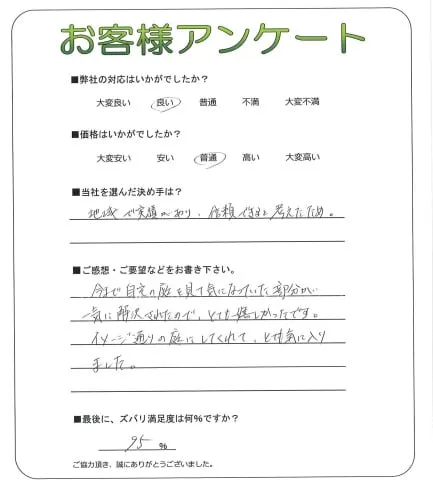 お客様アンケート
■弊社の対応はいかがでしたか?
大変良い 良い 普通 不満 大変不満
■価格はいかがでしたか?
大変安い 安い 普通 高い 大変高い
■当社を選んだ決め手は?
地域で実績があり、信頼できると考えたため。
■ご感想・ご要望などをお書き下さい。
今まで自宅の庭を見て気になっていた部分が
一気に解決されたので、とても嬉しかったです。
イメージ通りの庭にしてくれて、とても気に入り
ました。
■最後に、ズバリ満足度は何%ですか?
95 %
ご協力頂き、誠にありがとうございました。